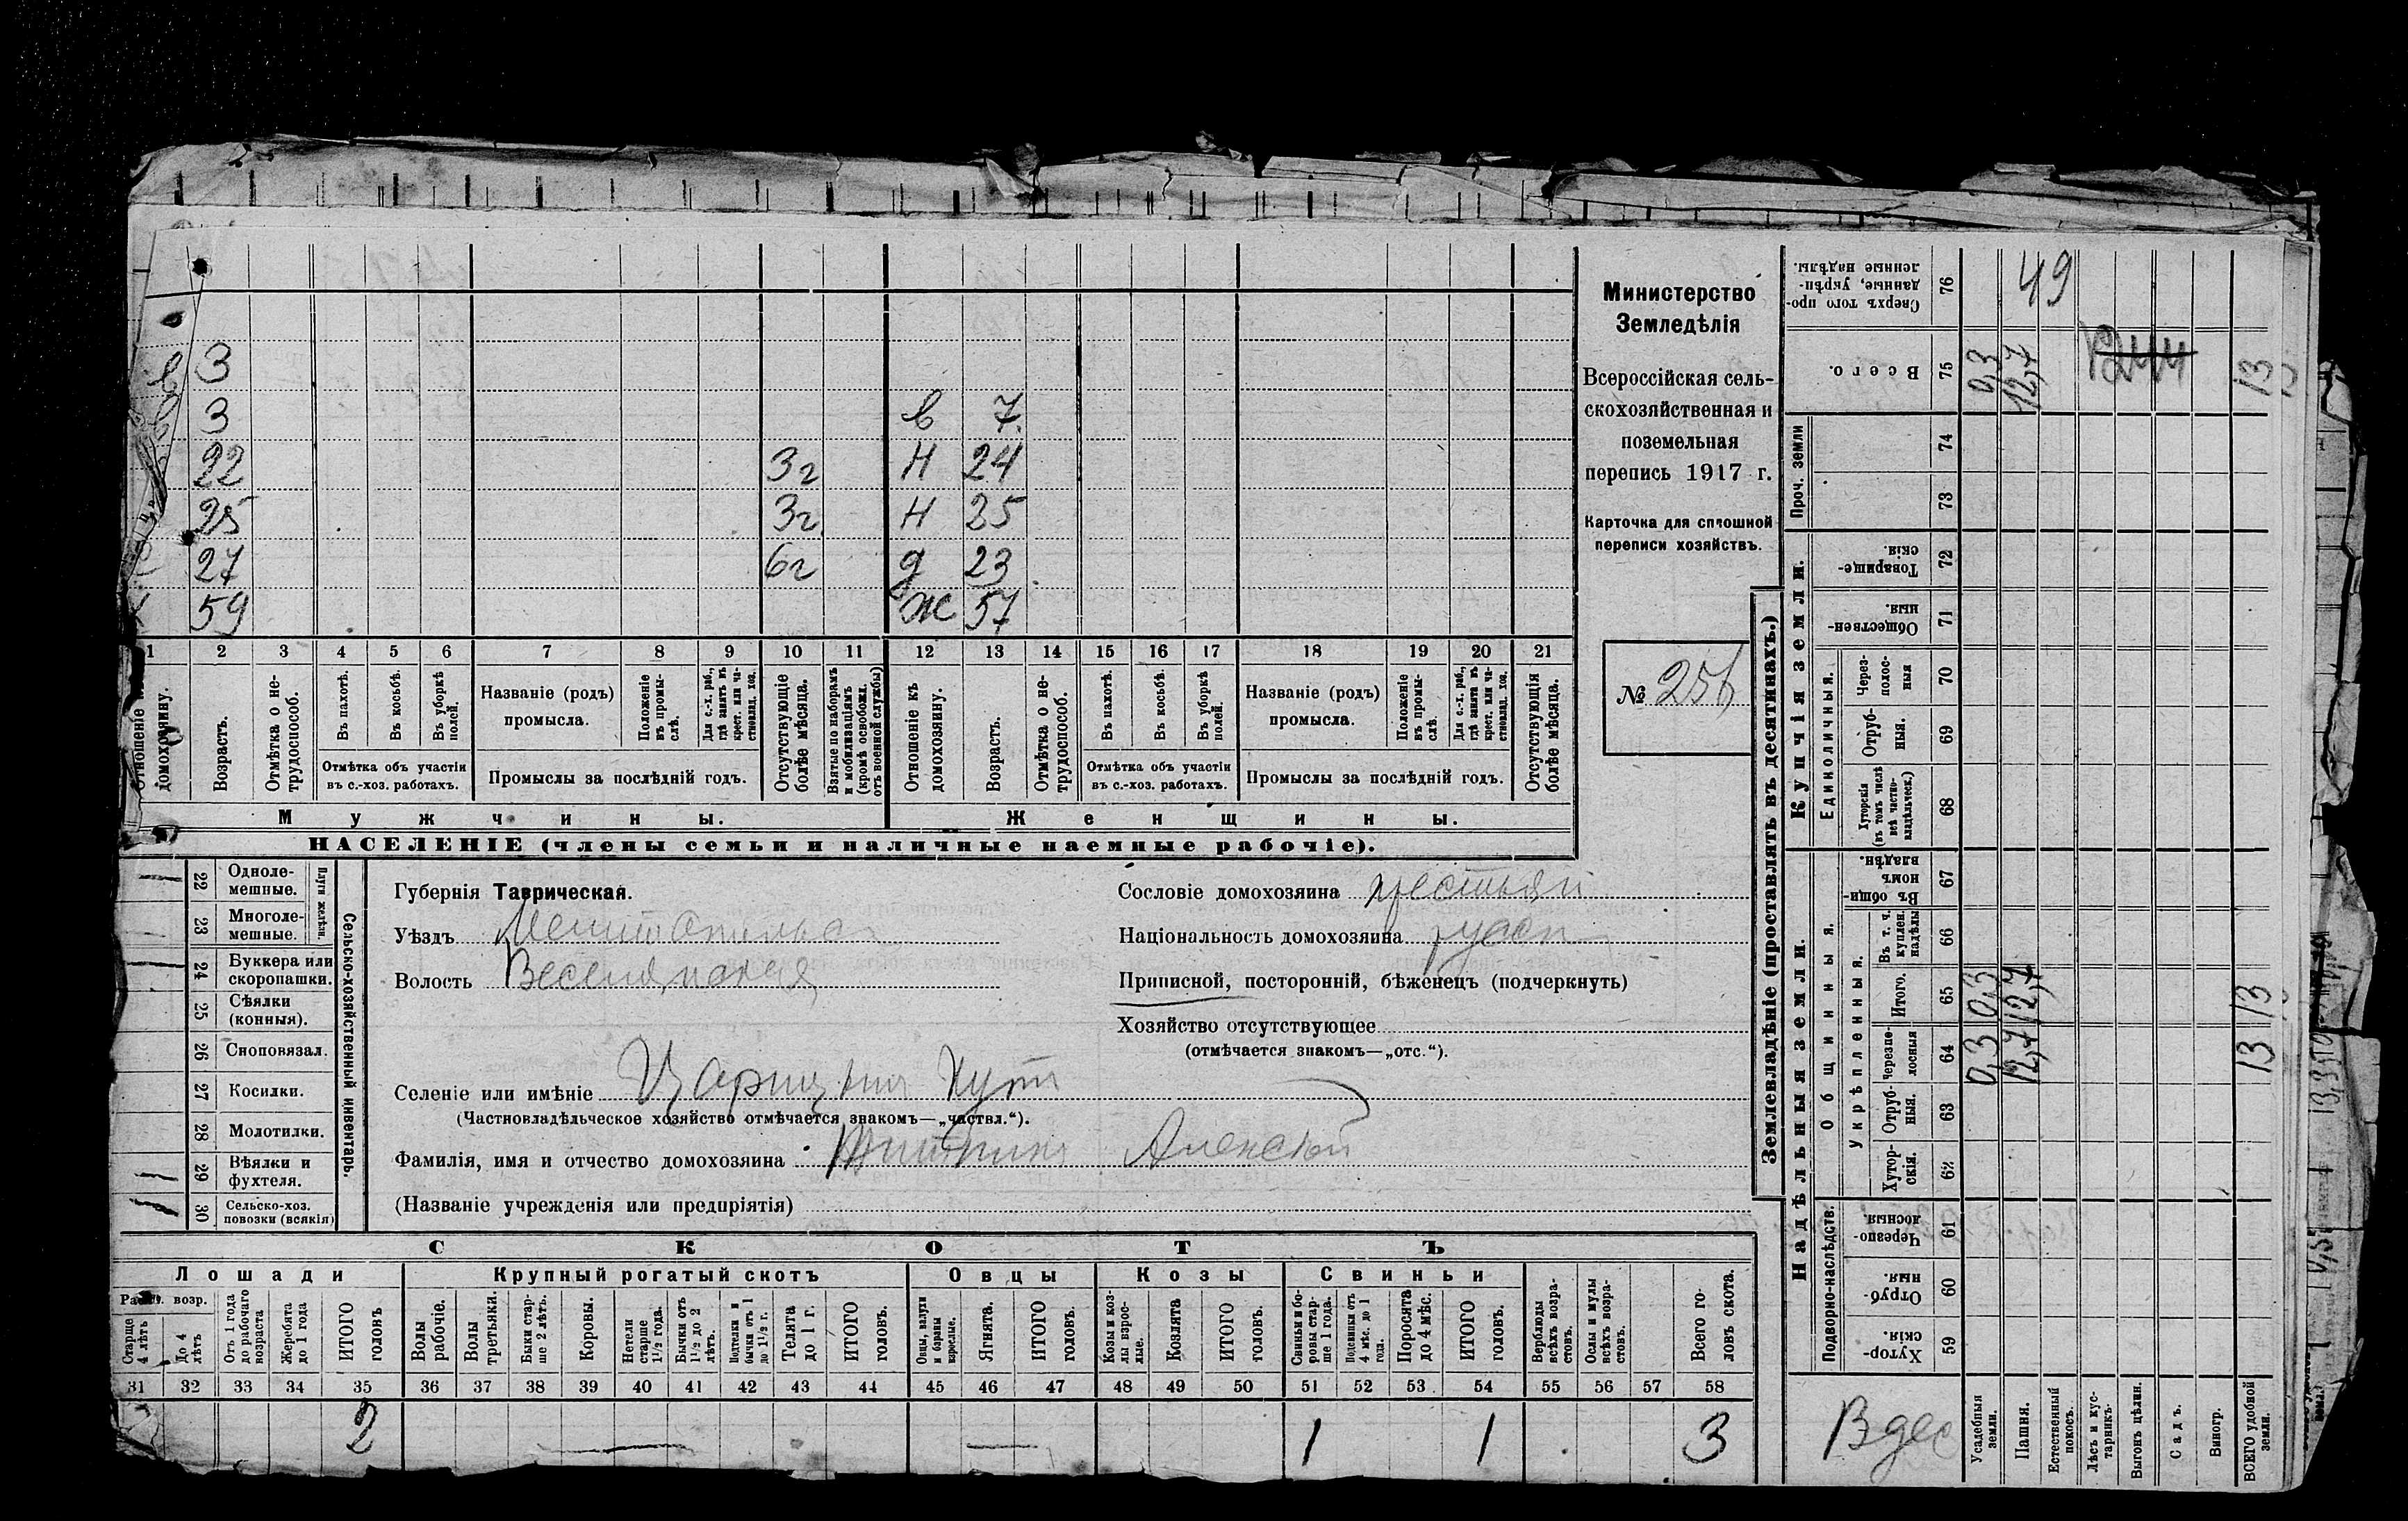 Министерство
Земледѣлія
Всероссійская сель-
скохозяйственная и
поземельная
перепись 1917 г.
Карточка для сплошной
переписи хозяйствъ.
№ 256
в 3
в 3 в 7
22 3г Н 24
25 3г Н 25
27 6г д 23
х 59 ж 57
1 2 3 4 5 6 7 8 9 10 11 12 13 14 15 16 17 18 19 20 21
Отношеніе къ домохозяину.
Возрастъ.
Отмѣтка о не-
трудоспособ.
Въ пахотѣ.
Въ косьбѣ.
Въ уборкѣ
полей.
Отмѣтка объ участіи
въ с.-хоз. работахъ.
Названіе (родъ)
промысла.
Положеніе
въ промы-
слѣ.
Для с.-х. раб.,
гдѣ занятъ въ
крест. или ча-
стновлад. хоз.
Промыслы за послѣдній годъ.
Отсутствующіе
болѣе мѣсяца.
Взятые по наборамъ
и мобилизаціямъ
(кромѣ освобожд.
отъ военной службы)
Отношеніе къ
домохозяину.
Возрастъ.
Отмѣтка о не-
трудоспособ.
Въ пахотѣ.
Въ косьбѣ.
Въ уборкѣ
полей.
Отмѣтка объ участіи
въ с.-хоз. работахъ.
Названіе (родъ)
промысла.
Положеніе
въ промы-
слѣ.
Для с.-х. раб.,
гдѣ занятъ въ
крест. или ча-
стновлад. хоз.
Промыслы за послѣдній годъ.
Отсутствующія
болѣе мѣсяца.
Мужчины. Женщины.
НАСЕЛЕНІЕ (члены семьи и наличные наемные рабочіе).
22 Одноле-
мешные.
23 Многоле-
мешные.
Плуги желѣзн.
24 Буккера или
скоропашки.
25 Сѣялки
(конныя).
26 Сноповязал.
27 Косилки.
28 Молотилки.
29 Вѣялки и
фухтеля.
30 Сельско-хоз.
повозки (всякія)
Сельско-хозяйственный инвентарь.
Губернія Таврическая.
Уѣздъ Мелитопольск
Волость Веселянская
Селеніе или имѣніе Царицын Кут
(Частновладѣльческое хозяйство отмѣчается знакомъ—„частвл.“).
Фамилія, имя и отчество домохозяина Алексѣй
(Названіе учрежденія или предпріятія)
Сословіе домохозяина крестьян
Національность домохозяина русск
Приписной, посторонній, бѣженецъ (подчеркнуть)
Хозяйство отсутствующее
(отмѣчается знакомъ—„отс.“).
СКОТЪ
Лошади Крупный рогатый скотъ Овцы Козы Свиньи
Рабоч. возр.
Старше
4 лѣтъ
До 4
лѣтъ
Отъ 1 года
до рабочаго
возраста
Жеребята
до 1 года
ИТОГО
головъ
Волы
рабочіе.
Волы
третьяки.
Быки стар-
ше 2 лѣтъ.
Коровы.
Нетели
старше
1½ года.
Бычки отъ
1½ до 2
лѣтъ.
Подтелки и
бычки отъ 1
до 1½ г.
Телята
до 1 г.
ИТОГО
головъ.
Овцы, валухи
и бараны
взрослые.
Ягнята.
ИТОГО
головъ.
Козы и коз-
лы взрос-
лые.
Козлята
ИТОГО
головъ.
Свиньи и бо-
ровы стар-
ше 1 года.
Подсвинки отъ
4 мѣс. до 1
года.
Поросята
до 4 мѣс.
ИТОГО
головъ.
Верблюды
всѣхъ возра-
стовъ.
Ослы и мулы
всѣхъ возра-
стовъ.
Всего го-
ловъ скота.
31 32 33 34 35 36 37 38 39 40 41 42 43 44 45 46 47 48 49 50 51 52 53 54 55 56 57 58
2 — — 1 1 3
Землевладѣніе (проставлять въ десятинахъ.)
Надѣльныя земли. Купчія земли. Проч. земли
Подворно-наслѣдств. Общинныя. Единоличныя.
Укрѣпленныя.
59 Хутор-
скія.
60 Отруб-
ныя.
61 Черезпо-
лосныя.
62 Хутор-
скія.
63 Отруб-
ныя.
64 Черезпо-
лосныя 0,3 12,7 13
65 Итого. 0,3 12,7 13
66 Въ т. ч.
куплен.
надѣлы
67 Въ общи-
номъ
владѣн.
68 Хуторскія
(въ томъ числѣ
всѣ частно-
владѣльческ.)
69 Отруб-
ныя.
70 Через-
полос-
ныя
71 Обществен-
ныя.
72 Товарище-
скія.
73
74
75 Всего. 0,3 12,7 13
76 Сверхъ того про-
данные, укрѣп-
ленные надѣлы. 49
В дес
Усадебныя
земли.
Пашня.
Естественный
покосъ.
Лѣсъ и кус-
тарникъ.
Выгонъ цѣлин.
Садъ.
Виногр.
ВСЕГО удобной
земли.